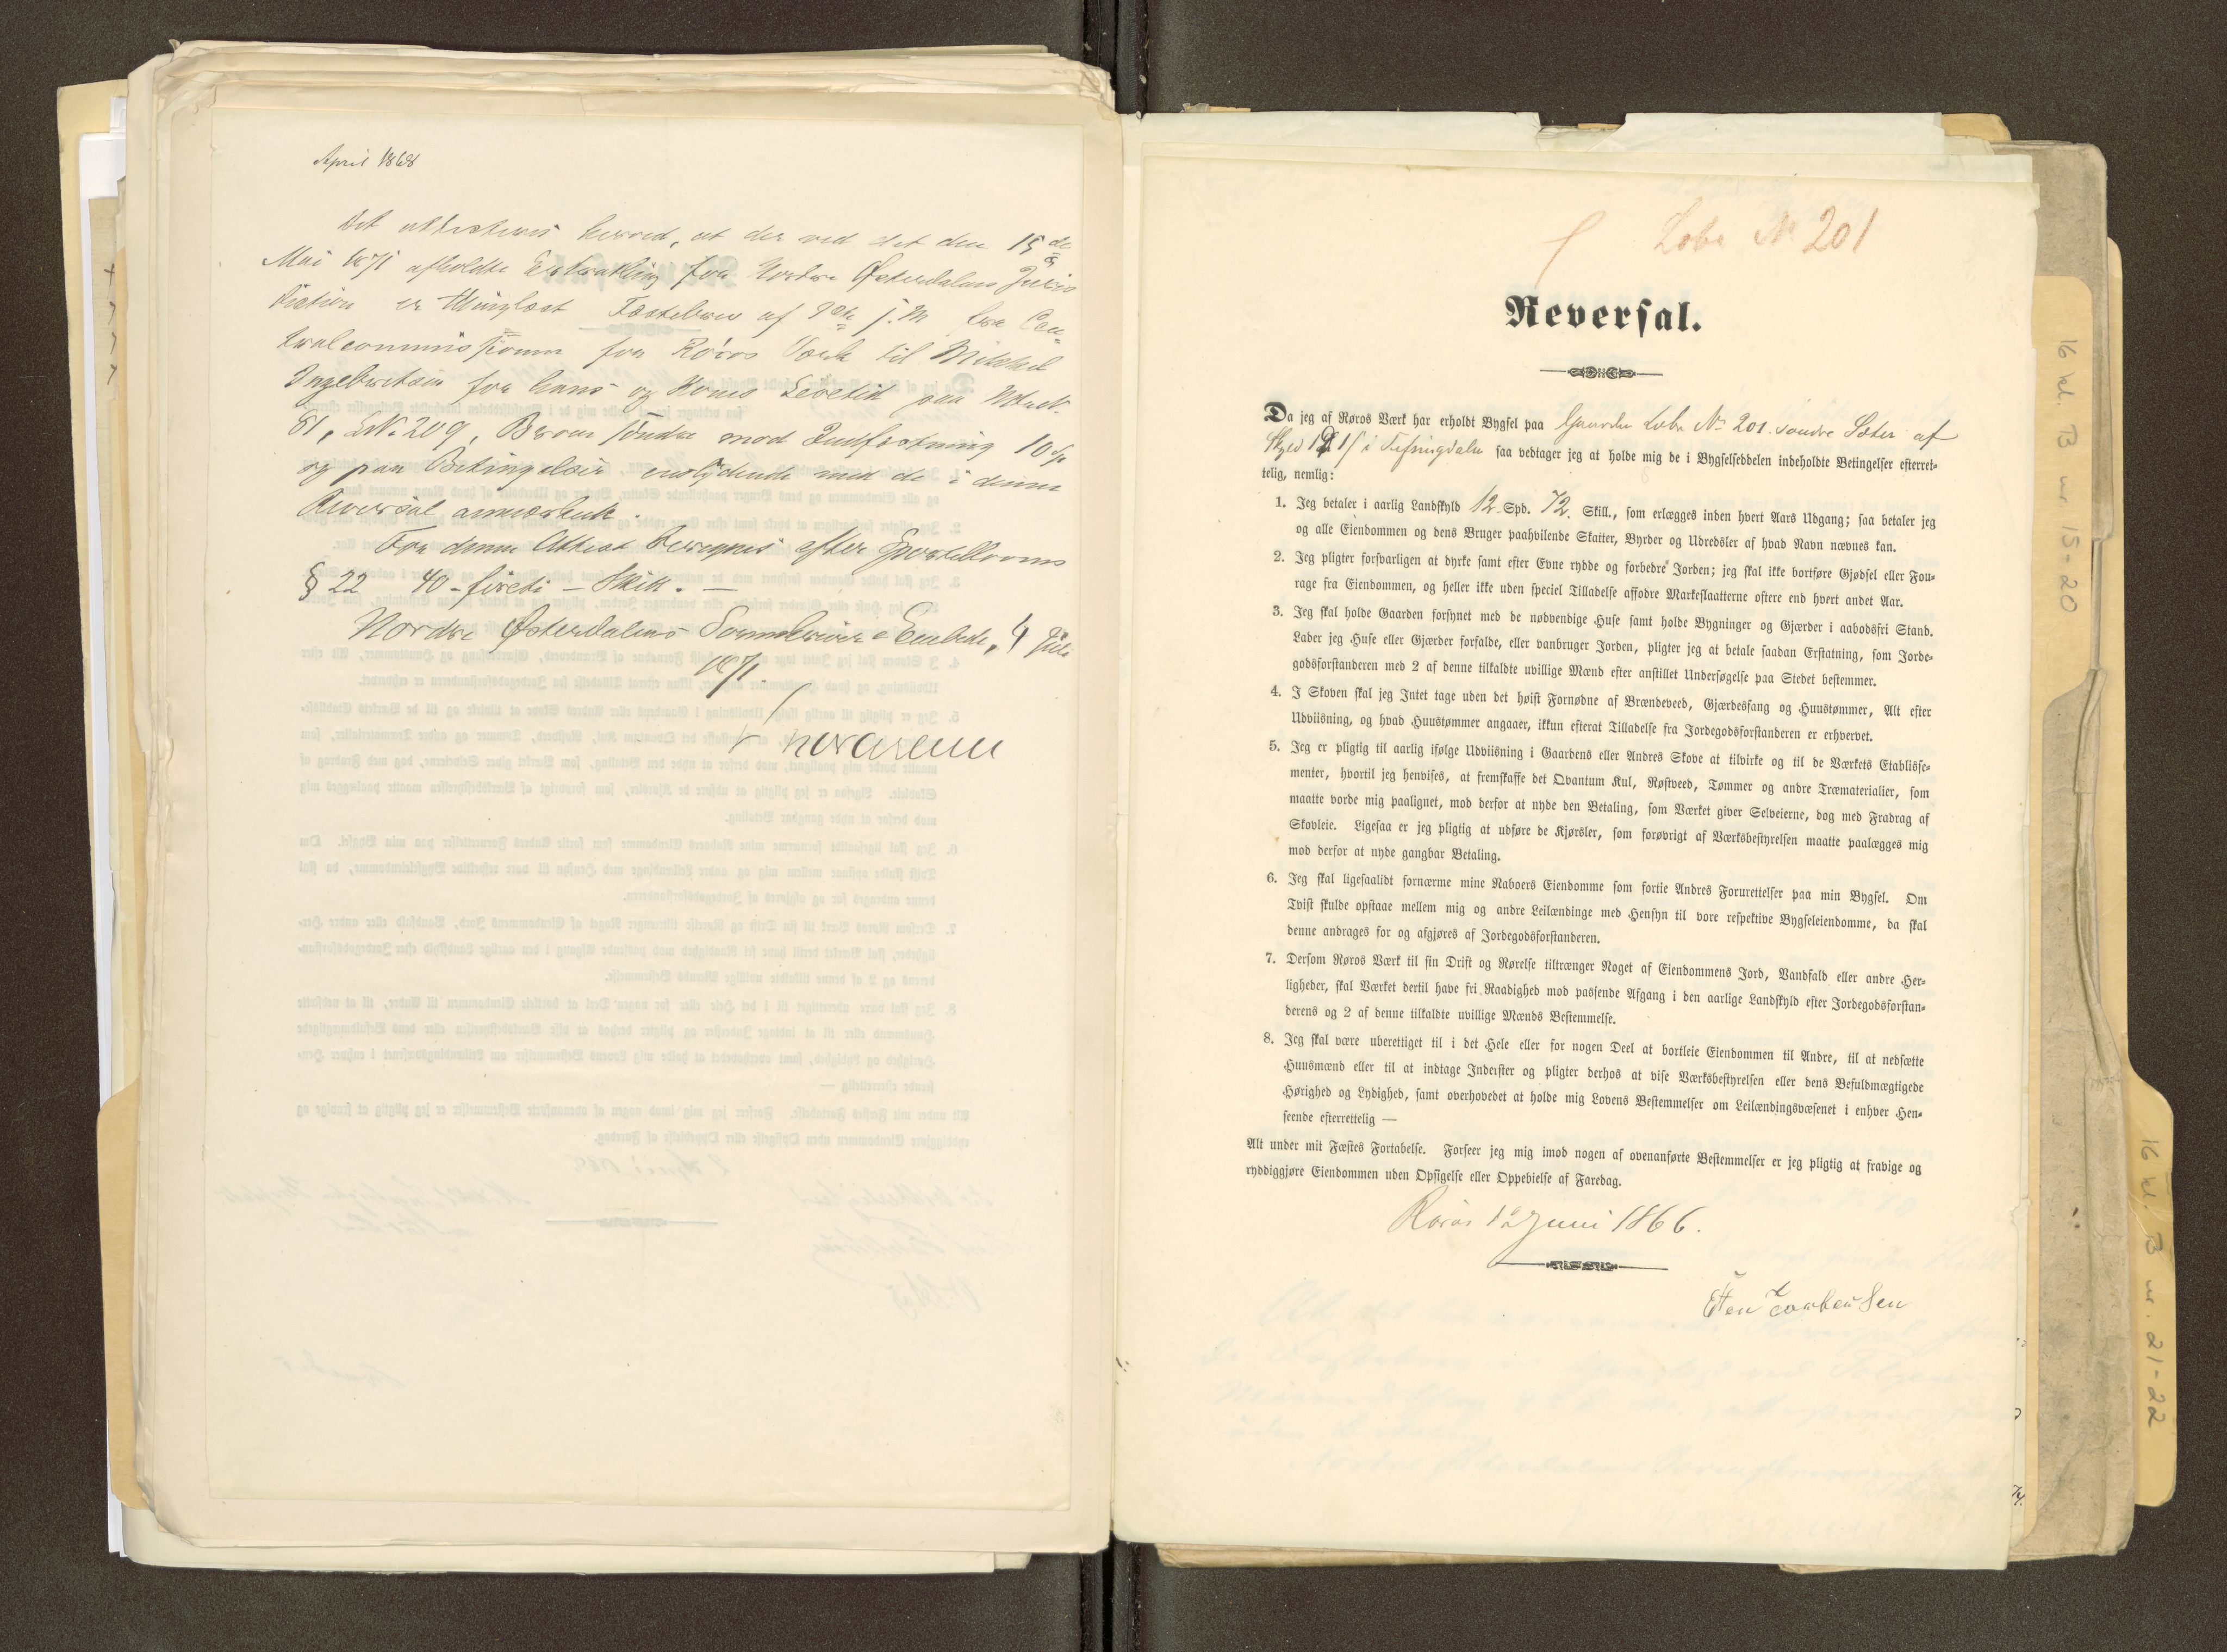 April 1868
Det attesteres herved, at der ved det den 15de
Mai 1871 afholdte Extrathing for Nordre Østerdalens Juris
diction er thinglæst Fæstebrev af 9de f. M. fra Cen
tralcommissionen for Røros Værk til Mikkel
Ingebretsen for hans og Kones Levetid paa Matr.N.
81, LN. 209, søndre mod Indfæstning 10 Sp
og paa Betingelser enslydende med de i denne
Reversal anmærkede.
For denne Attest beregnes efter Sportelloven
§ 22 40 - fireti - Skill. -
Nordre Østerdalens Sorenskriver Embede, 4 Juli
1871.
Løbe No 201
Reversal.
Da jeg af Røros Værk har erholdt Bygsel paa Gaarden Løbe No 201 søndre Sæter af
Skyld i Tufsingdalen saa vedtager jeg at holde mig de i Bygselseddelen indeholdte Betingelser efterret-
telig, nemlig:
1. Jeg betaler i aarlig Landskyld 12 Spd. 72 Skill., som erlægges inden hvert Aars Udgang; saa betaler jeg
og alle Eiendommen og dens Bruger paahvilende Skatter, Byrder og Udredsler af hvad Navn nævnes kan.
2. Jeg pligter forsvarligen at dyrke samt efter Evne rydde og forbedre Jorden; jeg skal ikke bortføre Gjødsel eller Fou-
rage fra Eiendommen, og heller ikke uden speciel Tilladelse affodre Markeslaatterne oftere end hvert andet Aar.
3. Jeg skal holde Gaarden forsynet med de nødvendige Huse samt holde Bygninger og Gjærder i aabodsfri Stand.
Lader jeg Huse eller Gjærder forfalde, eller vanbruger Jorden, pligter jeg at betale saadan Erstatning, som Jorde-
godsforstanderen med 2 af denne tilkaldte uvillige Mænd efter anstillet Undersøgelse paa Stedet bestemmer.
4. I Skoven skal jeg Intet tage uden det høist Fornødne af Brændeveed, Gjærdesfang og Huustømmer, Alt efter
Udviisning, og hvad Huustømmer angaaer, ikkun efterat Tilladelse fra Jordegodsforstanderen er erhvervet.
5. Jeg er pligtig til aarlig ifølge Udviisning i Gaardens eller Andres Skove at tilvirke og til de Værkets Etablisse-
menter, hvortil jeg henvises, at fremskaffe det Qvantum Kul, Røstveed, Tømmer og andre Træmaterialier, som
maatte vorde mig paalignet, mod derfor at nyde den Betaling, som Værket giver Selveierne, dog med Fradrag af
Skovleie. Ligesaa er jeg pligtig at udføre de Kjørsler, som forøvrigt af Værksbestyrelsen maatte paalægges mig
mod derfor at nyde gangbar Betaling.
6. Jeg skal ligesaalidt fornærme mine Naboers Eiendomme som fortie Andres Forurettelser paa min Bygsel. Om
Tvist skulde opstaae mellem mig og andre Leilændinge med Hensyn til vore respektive Bygseleiendomme, da skal
denne andrages for og afgjøres af Jordegodsforstanderen.
7. Dersom Røros Værk til sin Drift og Rørelse tiltrænger Noget af Eiendommens Jord, Vandfald eller andre Her-
ligheder, skal Værket dertil have fri Raadighed mod passende Afgang i den aarlige Landskyld efter Jordegodsforstan-
derens og 2 af denne tilkaldte uvillige Mænds Bestemmelse.
8. Jeg skal være uberettiget til i det Hele eller for nogen Deel at bortleie Eiendommen til Andre, til at nedsætte
Huusmænd eller til at indtage Inderster og pligter derhos at vise Værksbestyrelsen eller dens Befuldmægtigede
Hørighed og Lydighed, samt overhovedet at holde mig Lovens Bestemmelser om Leilændingsvæsenet i enhver Hen-
seende efterrettelig —
Alt under mit Fæstes Fortabelse. Forseer jeg mig imod nogen af ovenanførte Bestemmelser er jeg pligtig at fravige og
ryddiggjøre Eiendommen uden Opsigelse eller Oppebielse af Faredag.
Røros 12 Juni 1866.
16 kl B nr 15-20
16 kl. B nr. 21-22